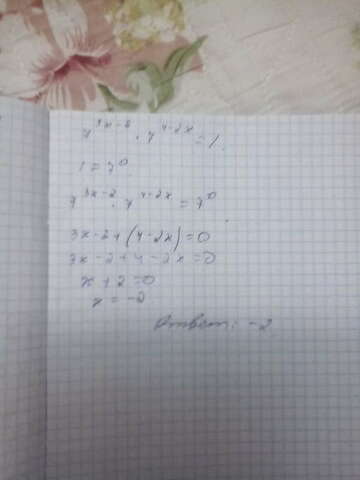 7^{3x-2} · 7^{4-2x} = 1.
1 = 7^0
7^{3x-2} · 7^{4-2x} = 7^0
3x-2+(4-2x)=0
3x-2+4-2x=0
x+2=0
x = -2
Ответ: -2